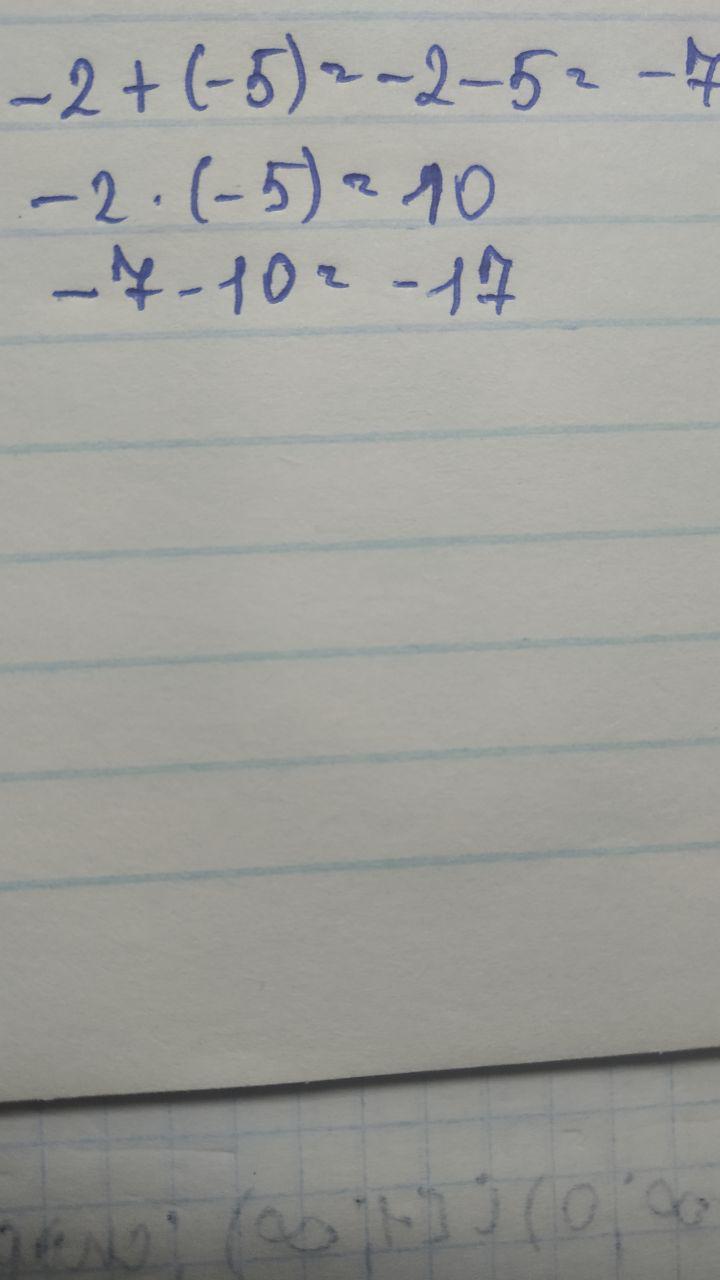 -2 + (-5) = -2 - 5 = -7
-2 · (-5) = 10
-7 - 10 = -17